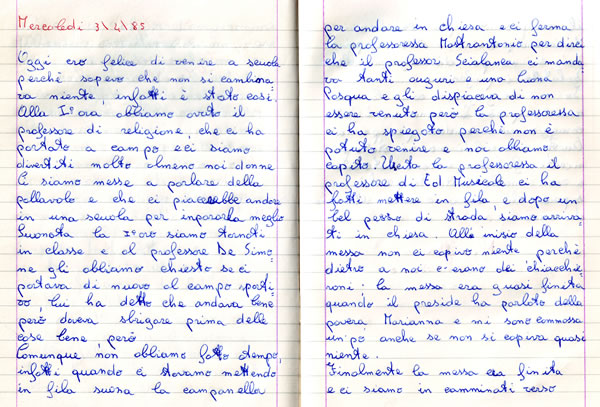 Mercoledì 3\4\85
Oggi ero felice di venire a scuola
perchè sapevo che non si cambina
va niente, infatti è stato così.
Alla I° ora abbiamo avuto il
professore di religione, che ci ha
portato a campo e ci siamo
divertiti molto almeno noi donne
Ci siamo messe a parlare della
pallavolo e che ci piacerebbe andare
in una scuola per impararla meglio
Suonata la 2° ora siamo tornati
in classe e al professore De Simo-
ne gli abbiamo chiesto se ci
portava di nuovo al campo sporti-
vo, lui ha detto che andava bene
però doveva sbrigare prima delle
cose bene, però
Comunque non abbiamo fatto tempo,
infatti quando ci stavamo mettendo
in fila suona la campanella
per andare in chiesa e ci ferma
la professoressa Mastrantonio per dirci
che il professor Scialanca ci manda
va tanti auguri e una buona
Pasqua e gli dispiaceva di non
essere venuto però la professoressa
ci ha spiegato perchè non è
potuto venire e noi abbiamo
capito. Uscita la professoressa il
professore di Ed Musicale ci ha
fatti mettere in fila, e dopo un
bel pezzo di strada siamo arriva-
ti in chiesa. All'inisio della
messa non ci capivo niente perchè
dietro a noi c'erano dei chiacchie-
roni. La messa era quasi finita
quando il preside ha parlato della
povera Marianna e mi sono commossa
un po anche se non si capiva quasi
niente.
Finalmente la messa era finita
e ci siamo in camminati verso